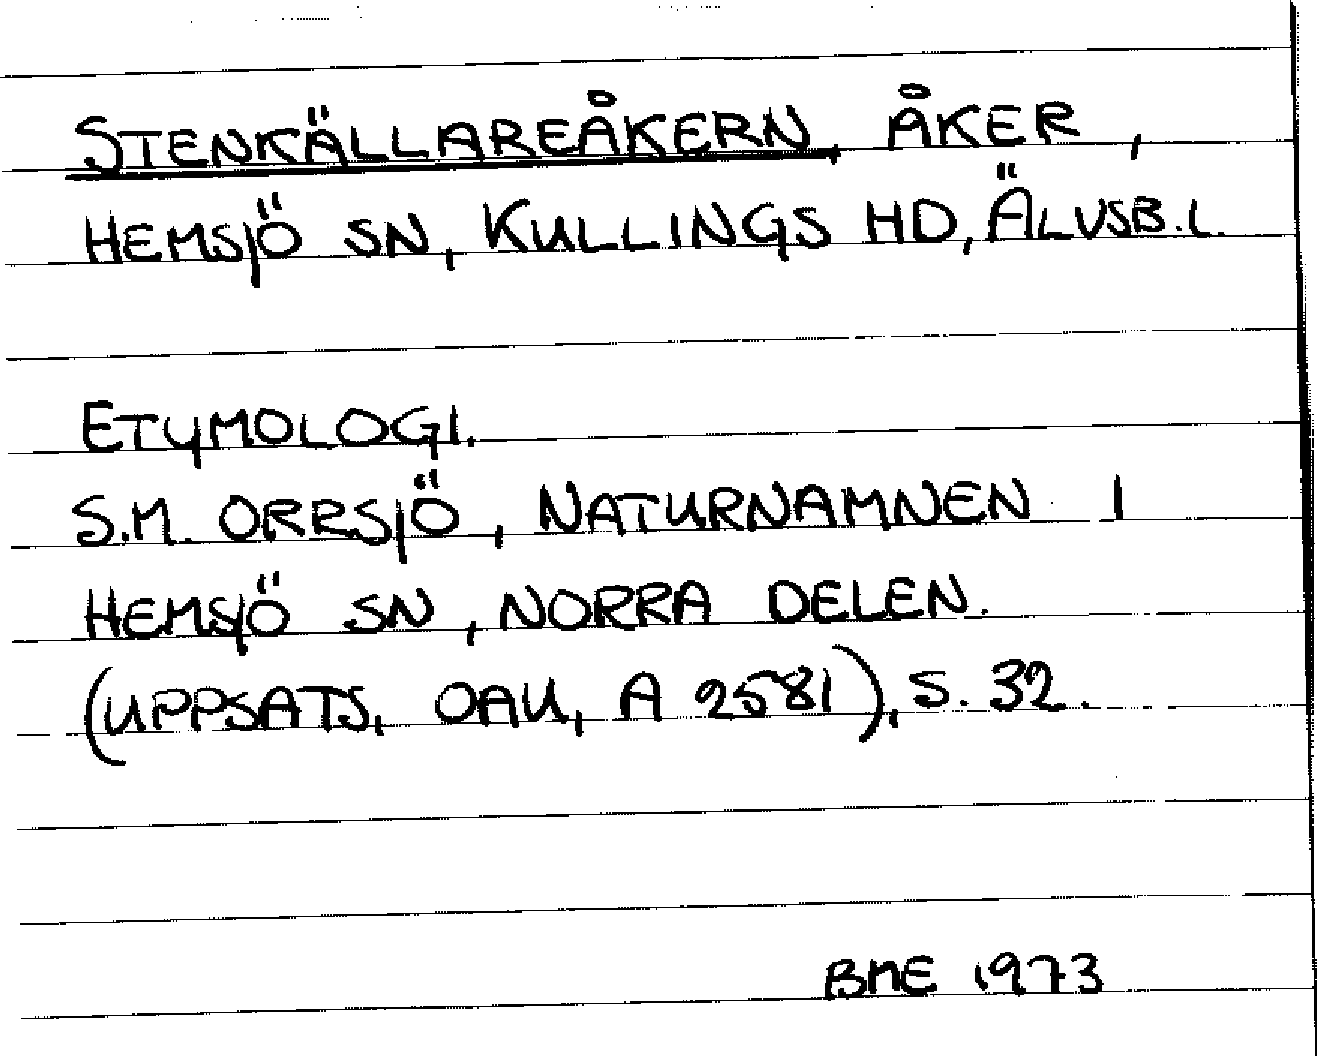 STENKÄLLAREÅKERN, ÅKER,
HEMSJÖ SN, KULLINGS HD, ÄLVSB. L.
ETYMOLOGI.
S.M. ORRSJÖ, NATURNAMNEN I
HEMSJÖ SN, NORRA DELEN.
(UPPSATS, OAU, A 2581), S. 32.
BME 1973